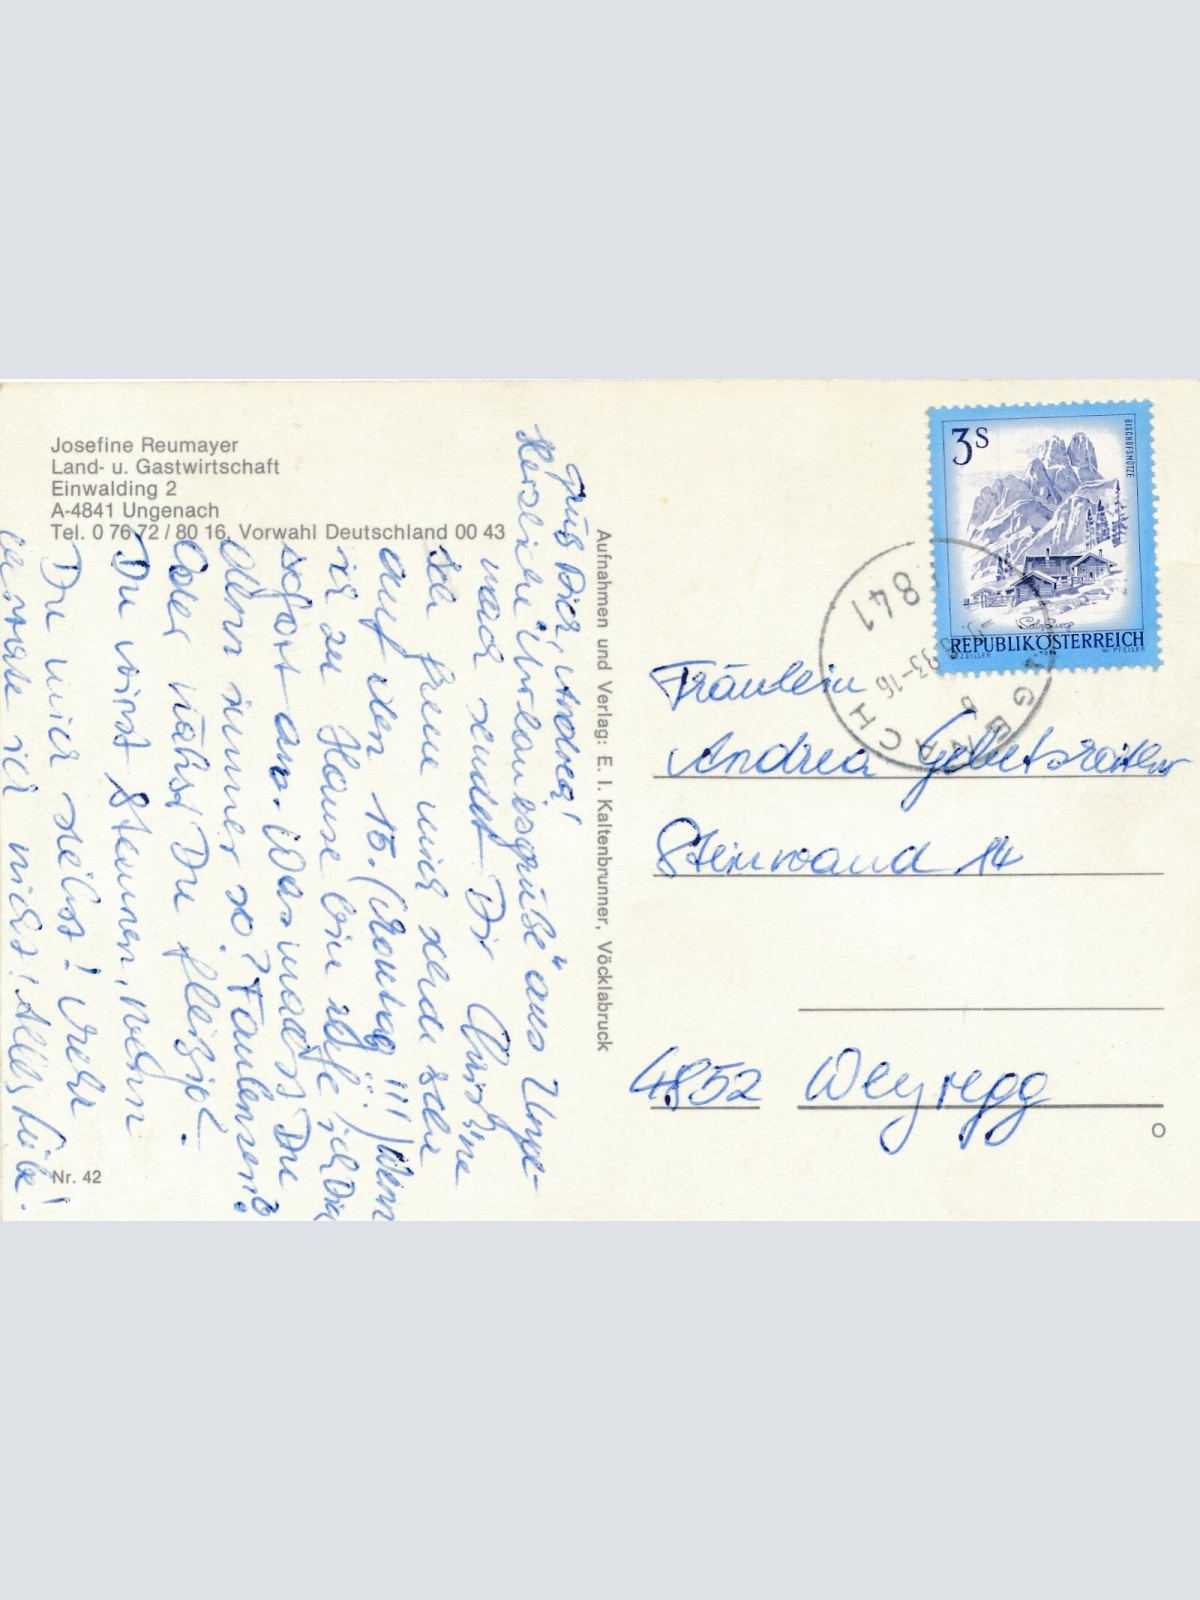 Josefine Reumayer
Land- u. Gastwirtschaft
Einwalding 2
A-4841 Ungenach
Tel. 0 76 72 / 80 16, Vorwahl Deutschland 00 43
Grüß Dich, Andrea!
Herzliche "Urlaubsgrüße" aus Unge-
nach sendet Dir Christine
Ich freue mich schon sehr
auf den 15. (Montag!!!) Wenn
ich zu Hause bin rufe ich Dich
sofort an. Was machst Du
denn immer so? Faulenzen?
Oder nähst Du fleißig?
Du wirst staunen, wenn
Du mich siehst! Mehr
verrate ich nicht! Alles Liebe!
Nr. 42
Aufnahmen und Verlag: E. I. Kaltenbrunner, Vöcklabruck
3S
BISCHOFSMÜTZE
Salzburg
REPUBLIK ÖSTERREICH
W. PFEILER
4841 UNGENACH
83-16
b
Fräulein
Andrea Gebetsroither
Steinwand 14
4852 Weyregg